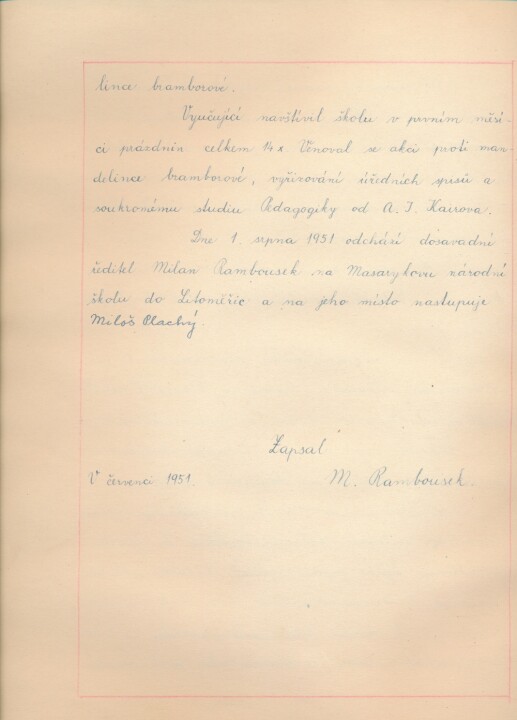 lince bramborové.
Vyučující navštívil školu v prvním měsí-
ci prázdnin celkem 14x. Věnoval se akci proti man-
delince bramborové, vyřizování úředních spisů a
soukromému studiu Pedagogiky od A. I. Kairova.
Dne 1. srpna 1951 odchází dosavadní
ředitel Milan Rambousek na Masarykovu národní
školu do Litoměřic a na jeho místo nastupuje
Miloš Plachý.
Zapsal
V červenci 1951. M. Rambousek.